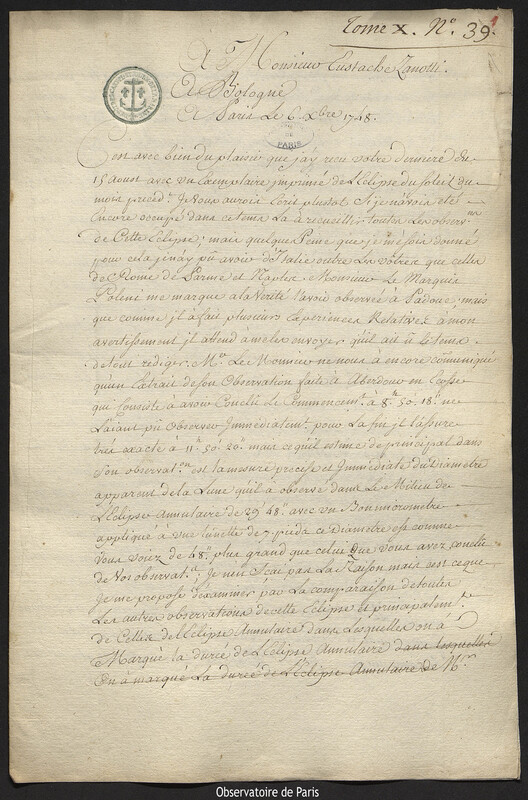 Tome X. N.º 39.
A Monsieur Eustache Zanotti.
A Bologne
A Paris Le 6 Xbre 1748.
PARIS
C'est avec bien du plaisir que j'ay reçu vôtre derniere du
15 Aoust avec un Exemplaire imprimé de L'Eclipse du Soleil du
mois preced.t Je Vous aurois Ecrit plustot Si je n'avois été
Encore occupé dans ce tems La à recueillir toutes Les observ.ns
de Cette Eclipse; mais quelque Peine que je me sois donné
pour cela je n'ay pû avoir d'Italie outre La vôtre que celles
de Rome de Parme et Naples. Monsieur Le Marquis
Poleni me marque a la Verité l'avoir observée à Padoue; mais
que comme il à fait plusieurs Experiences Relatives à mon
avertissement il attend à me les envoyer qu'il ait û Le tems
de tout rediger. Mr. Le Monnier ne nous à encore communiqué
qu'un Extrait de son Observation faite à Aberdour en Ecosse
qui Consiste à avoir Conclu Le Commencem.t à 8.h 50. 18. ne
L'aiant pû Observer Immédiatem.t pour La fin il L'assure
très exacte à 11.h 50. 20. mais ce qu'il estime de principal dans
Son observat.on est la mesure precise et Immédiate du Diametre
apparent de la Lune qu'il à observé dans Le Milieu de
L'Eclipse Annulaire de 29. 48. avec un Bon micrometre
appliqué à une Lunette de 7 pieds ce Diametre est comme
Vous voiez de 48. plus grand que celui que Vous avez conclu
de Vos observat.s; Je n'en Scai pas La Raison mais c'est ce que
Je me propose d'examiner par La comparaison de toutes
Les autres observations de cette Eclipse et principalem.t
de Celles de L'Eclipse Annulaire dans Lesquelles on à
Marqué la durée de L'Eclipse Annulaire dans lesquelles
On à marqué La durée de L'Eclipse Annulaire de Mr.
Observatoire de Paris